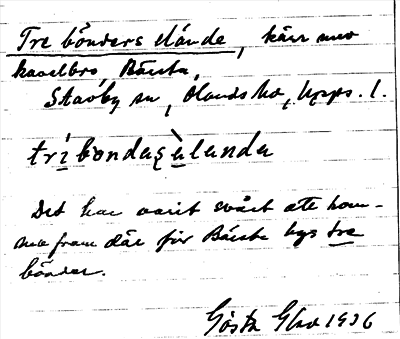 Tre bönders elände, kärr med
kavelbro, Bärsta,
Stavby sn, Olands hd, Upps. l.
trì bondaʂ àlanda
Det har varit svårt att kom-
ma fram där för Bärsta bys tre
bönder.
Gösta 1936